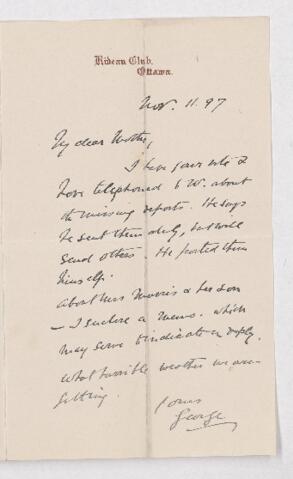 Rideau Club,
Ottawa.
Nov. 11. 97
My dear Mother,
I have your note &
have telephoned to W. about
the missing reports. He says
he sent them duly, but will
send others. He posted them
himself.
About Miss Morris & her son
— I enclose a memo. which
may serve to indicate a reply.
What horrible weather we are
getting.
Yours
George